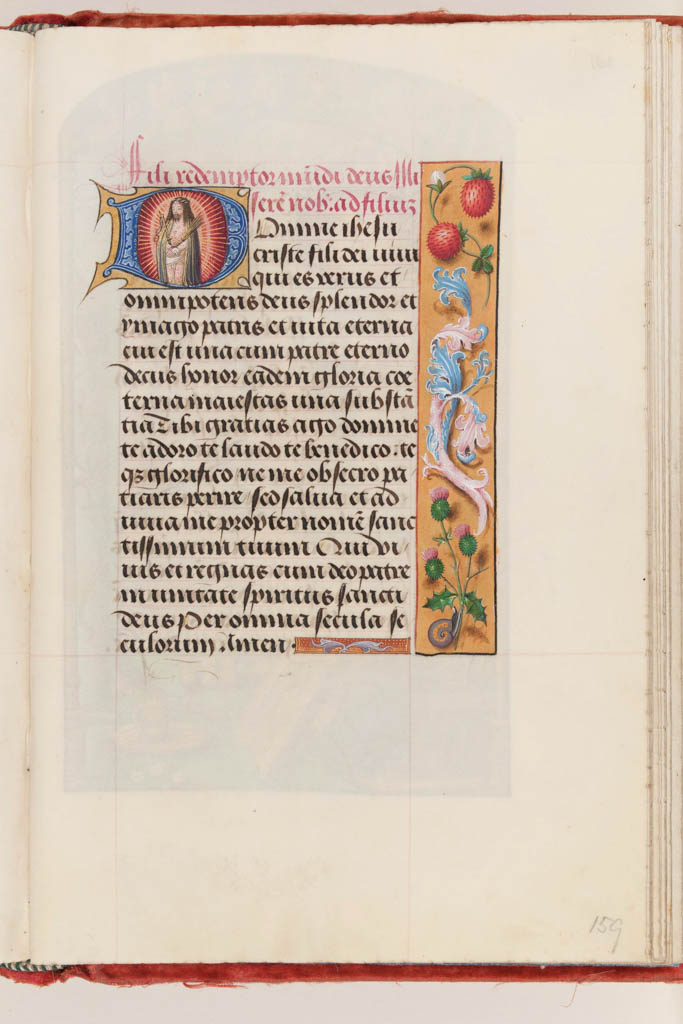 Fili redemptor mūdi deus Mi
serē nob. ad filiū
Domine ihesu
criste fili dei uiui
qui es verus et
omnipotens deus splendor et
ymago patris et uita eterna
cui est una cum patre eterno
decus honor eadem gloria coe
terna maiestas una substā
tia Tibi gratias ago domine
te adoro te laudo te benedico. te
qȝ glorifico ne me obsecro pa
tiaris perire sed salua et ad
iuua me propter nomē sanc
tissimum tuum Qui vi
uis et regnas cum deo patre
in unitate spiritus sancti
deus Per omnia secula se
culorum. Amen.
159